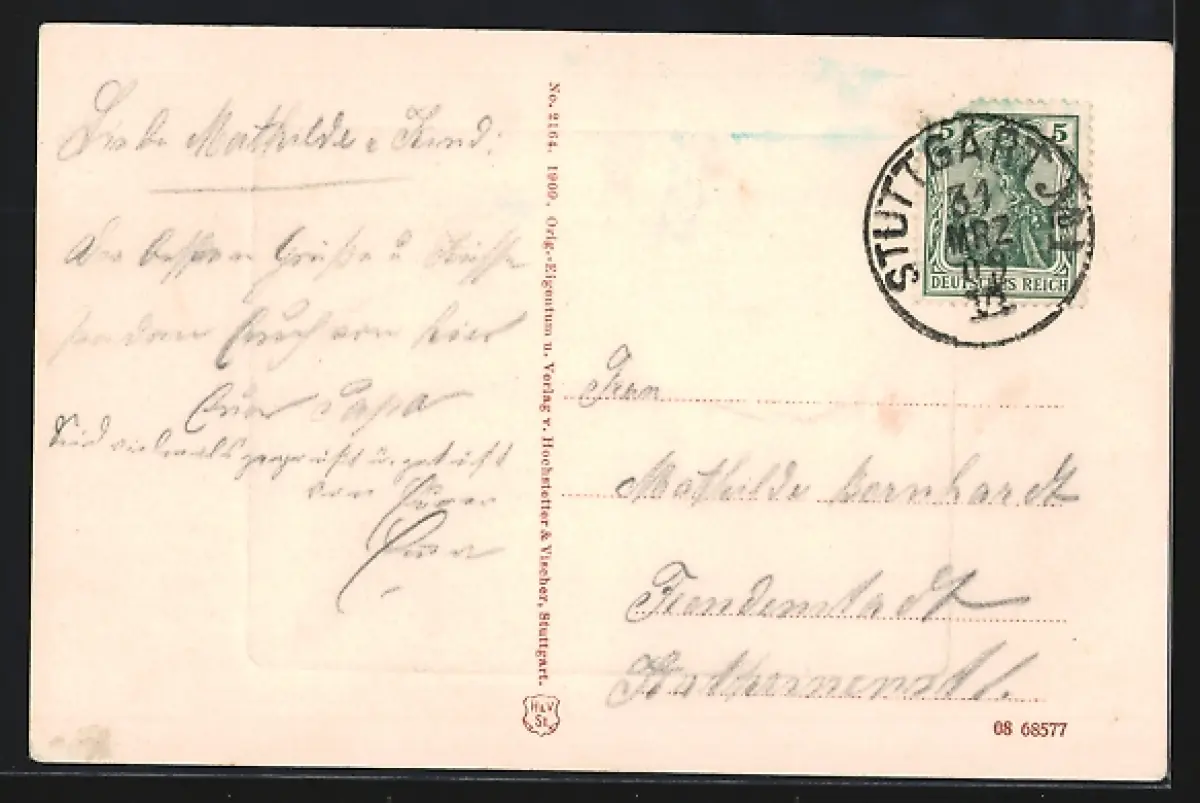 Liebe Mathilde u. Kind:
Die besten Grüße u. Küsse
senden Euch von hier
Euer Papa
Seid vielmals gegrüßt u. geküßt
von Eurer
No. 2164. 1909. Orig.-Eigentum u. Verlag v. Hochstetter & Vischer, Stuttgart.
H&V
St.
5 5
DEUTSCHES REICH
STUTTGART No 1
31
MRZ
09
Frau
Mathilde Bernhardt
Freudenstadt
08 68577